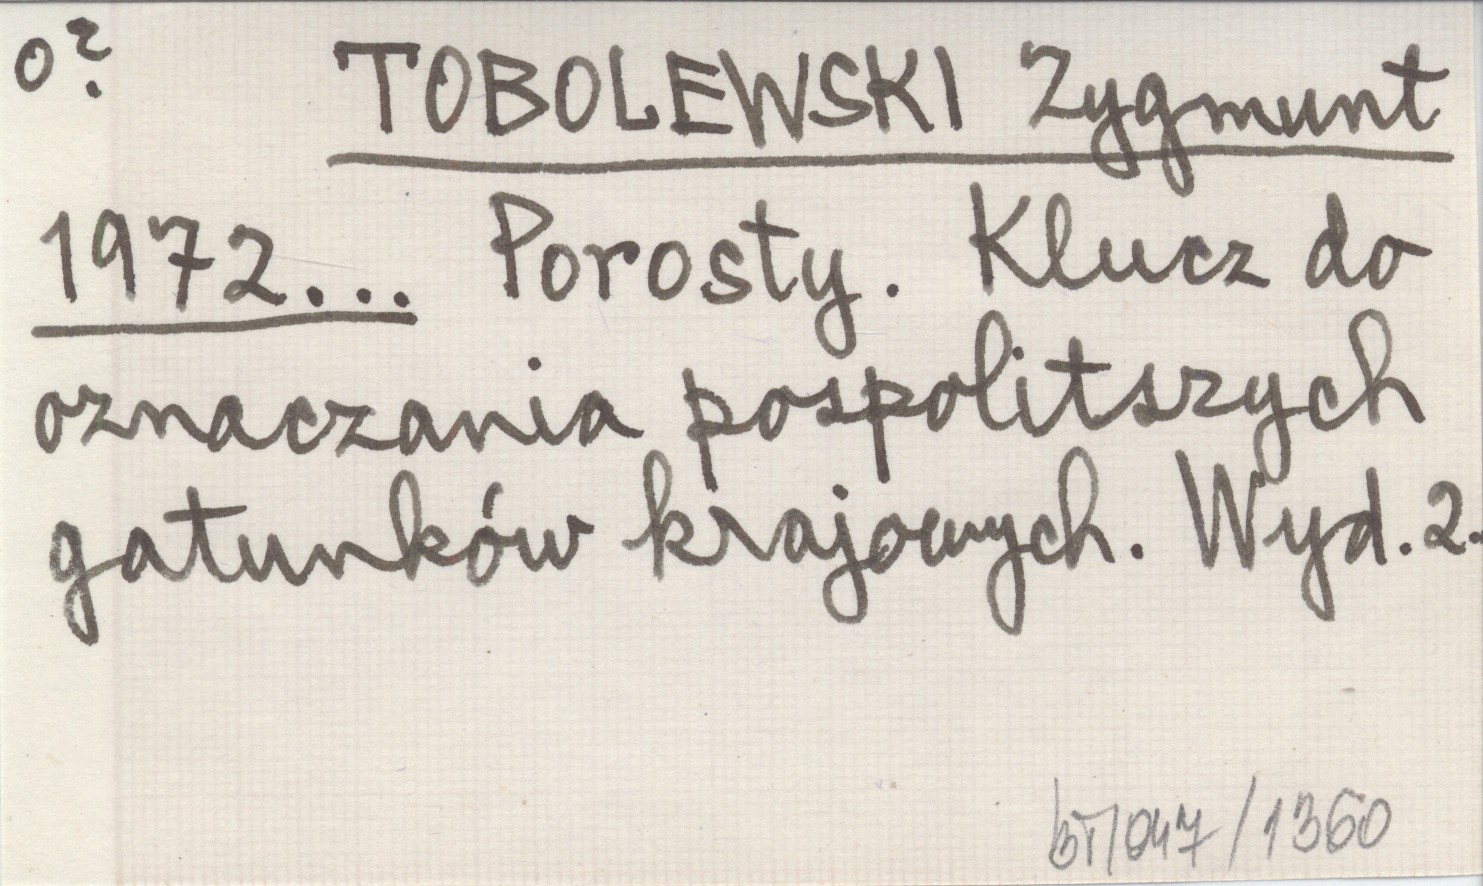 o? TOBOLEWSKI Zygmunt
1972... Porosty. Klucz do
oznaczania pospolitszych
gatunków krajowych. Wyd. 2.
/1360